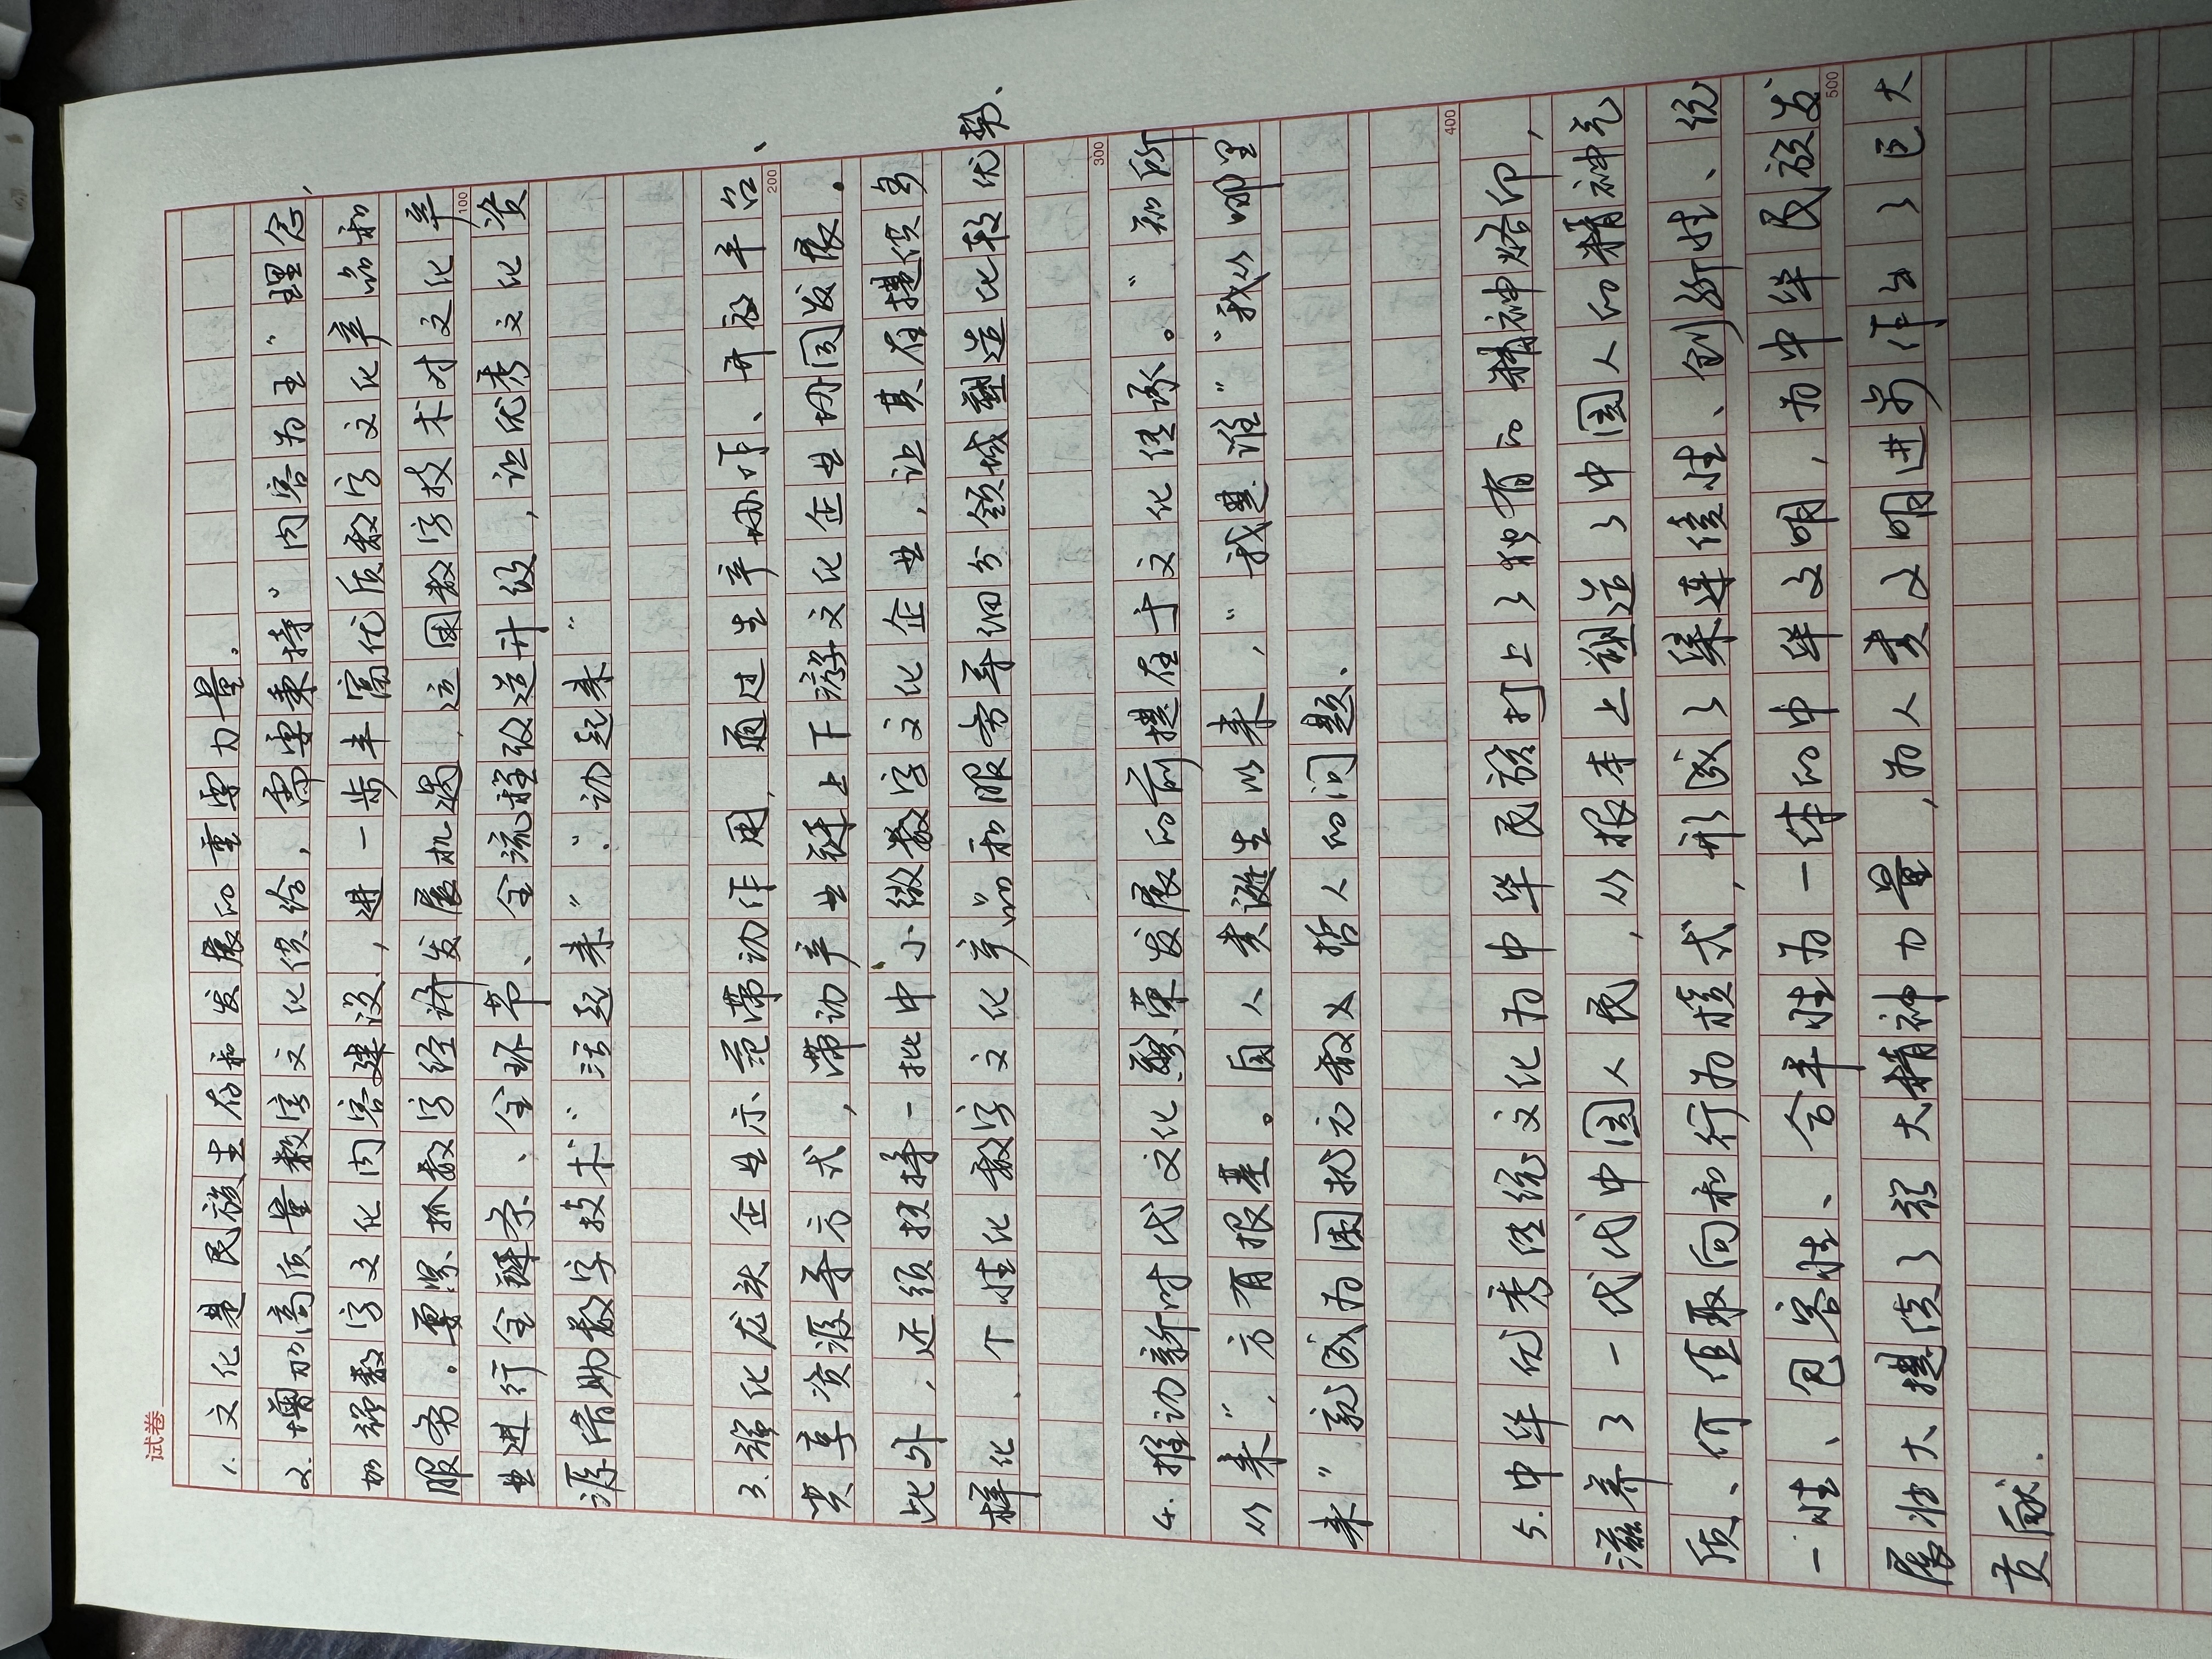 试卷
1.文化是民族生存和发展的重要力量。
2.增加高质量数字文化供给，需要秉持“内容为王”理念，
加强数字文化内容建设，进一步丰富优质数字文化产品和
服务。要紧抓数字经济发展机遇，运用数字技术对文化产
100
业进行全链条、全环节、全流程改造升级，让优秀文化资
源借助数字技术“活起来”“动起来”
3.强化龙头企业示范带动作用，通过生产协作、开放平台、
200
共享资源等方式，带动产业链上下游文化企业协同发展。
此外，还须扶持一批中小微数字文化企业，让其在提供多
样化、个性化数字文化产品和服务等细分领域塑造比较优势、
300
4.推动新时代文化繁荣发展的前提在于文化传承。“知所
从来”，方有根基。自人类诞生以来，“我是谁”“我从哪里
来”就成为困扰无数义哲人的问题、
400
5.中华优秀传统文化为中华民族打上了独有的精神烙印，
滋养了一代代中国人民，从根本上塑造了中国人的精神气
质、价值取向和行为模式，形成了集连续性、创新性、统
一性、包容性、合平性为一体的中华文明，为中华民族发
500
展壮大提供了强大精神力量，为人类文明进步作出了巨大
贡献.